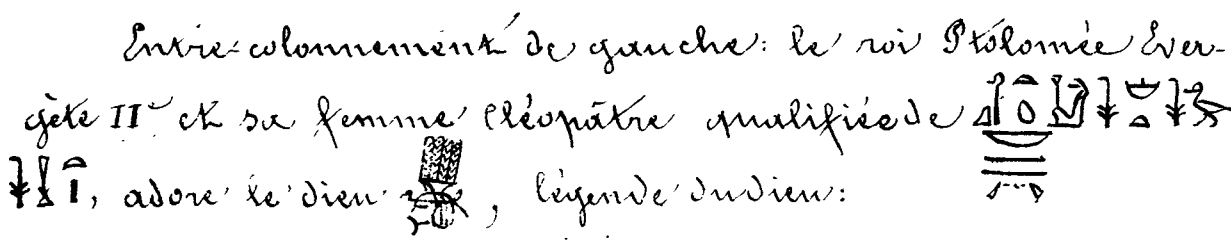 Entre-colonnement de gauche: le roi Ptolomée Ever-
gète II et sa femme Cléopâtre qualifiée de
, adore le dieu , légende du dieu: